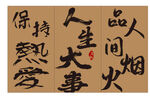 保持
熱愛
人生
大事
品人间
烟火